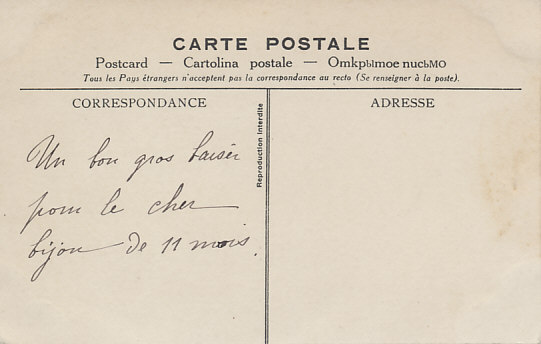 CARTE POSTALE
Postcard — Cartolina postale — Omkpыmoe nucьMO
Tous les Pays étrangers n'acceptent pas la correspondance au recto (Se renseigner à la poste).
CORRESPONDANCE
Un bon gros baiser
pour le cher
bijou de 11 mois.
Reproduction interdite
ADRESSE